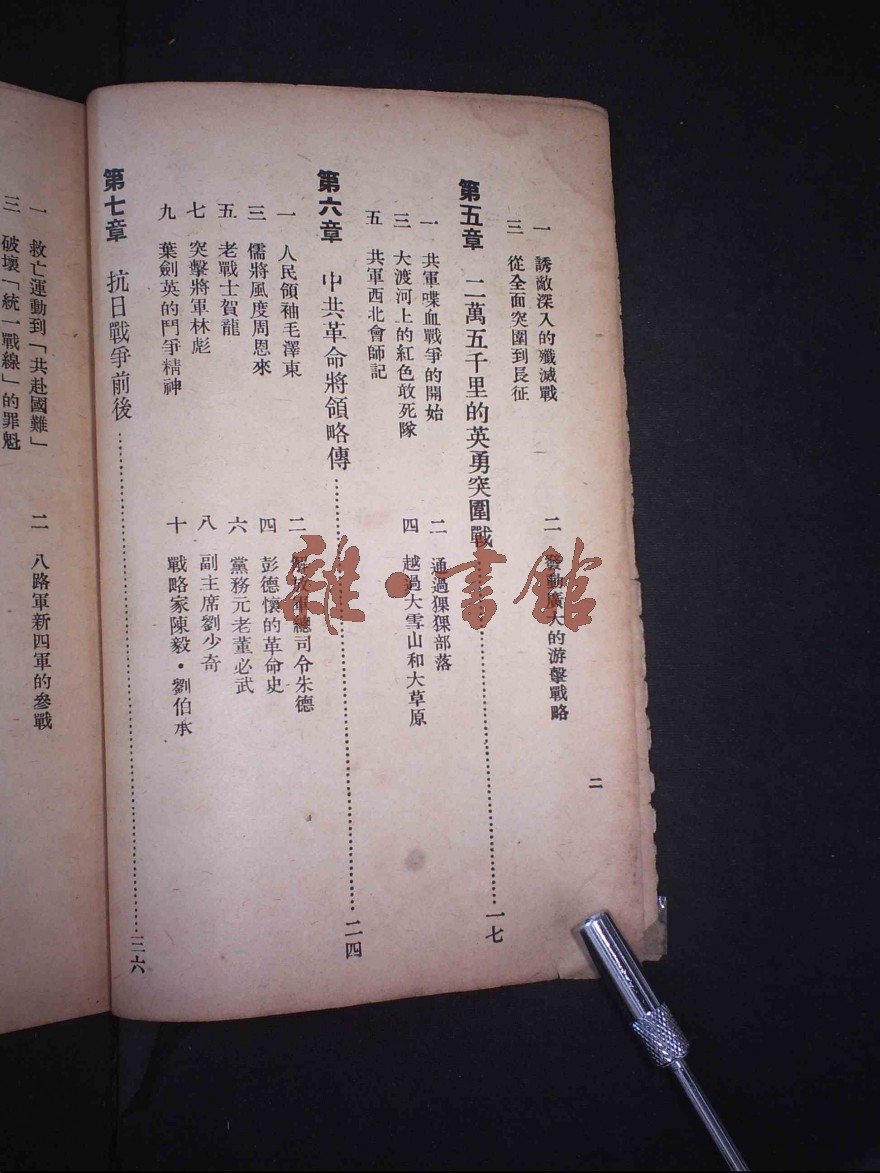 一　誘敵深入的殲滅戰
二　發動廣大的游擊戰略
三　從全面突圍到長征
第五章　二萬五千里的英勇突圍戰……一七
一　共軍喋血戰爭的開始
二　通過猓猓部落
三　大渡河上的紅色敢死隊
四　越過大雪山和大草原
五　共軍西北會師記
第六章　中共革命將領略傳……二四
一　人民領袖毛澤東
二　解放軍總司令朱德
三　儒將風度周恩來
四　彭德懷的革命史
五　老戰士賀龍
六　黨務元老董必武
七　突擊將軍林彪
八　副主席劉少奇
九　葉劍英的鬥爭精神
十　戰略家陳毅・劉伯承
第七章　抗日戰爭前後……三六
二
一　救亡運動到「共赴國難」
二　八路軍新四軍的參戰
三　破壞「統一戰線」的罪魁
雜・書館